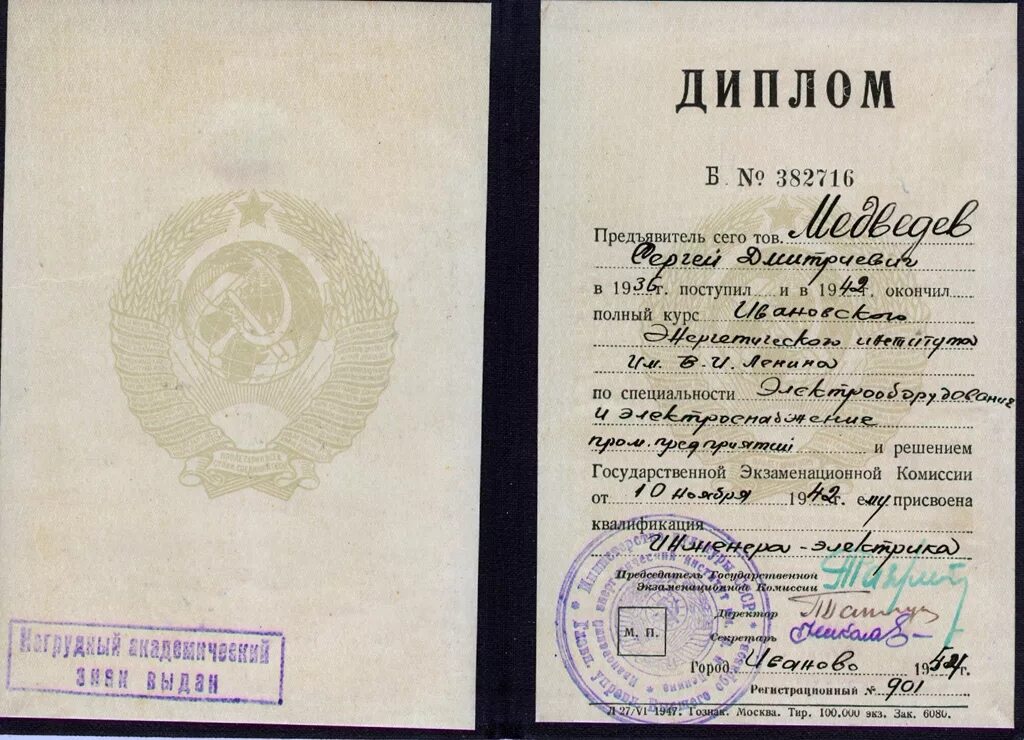 Нагрудный академический
знак выдан
ДИПЛОМ
Б № 382716
Предъявитель сего тов. Медведев
Сергей Дмитриевич
в 1936 г. поступил и в 1942 г. окончил
полный курс Ивановского
Энергетического института
им. В. И. Ленина
по специальности Электрооборудование
и электроснабжение
пром. предприятий и решением
Государственной Экзаменационной Комиссии
от 10 ноября 1942 г. ему присвоена
квалификация
Инженера - электрика
Председатель Государственной
Экзаменационной Комиссии
Директор
М. П.
Секретарь
Город Иваново 1954 г.
Регистрационный № 901
Л-27/VI 1947. Гознак. Москва. Тир. 100.000 экз. Зак. 6080.